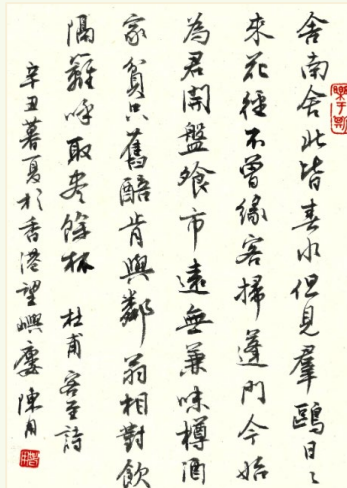 舍南舍北皆春水但見羣鷗日〻
來花徑不曾緣客掃蓬門今始
為君開盤飧市遠無兼味樽酒
家貧只舊醅肯與鄰翁相對飲
隔籬呼取尽餘杯　杜甫客至詩
辛丑暮夏於香港望嶼廔陳用